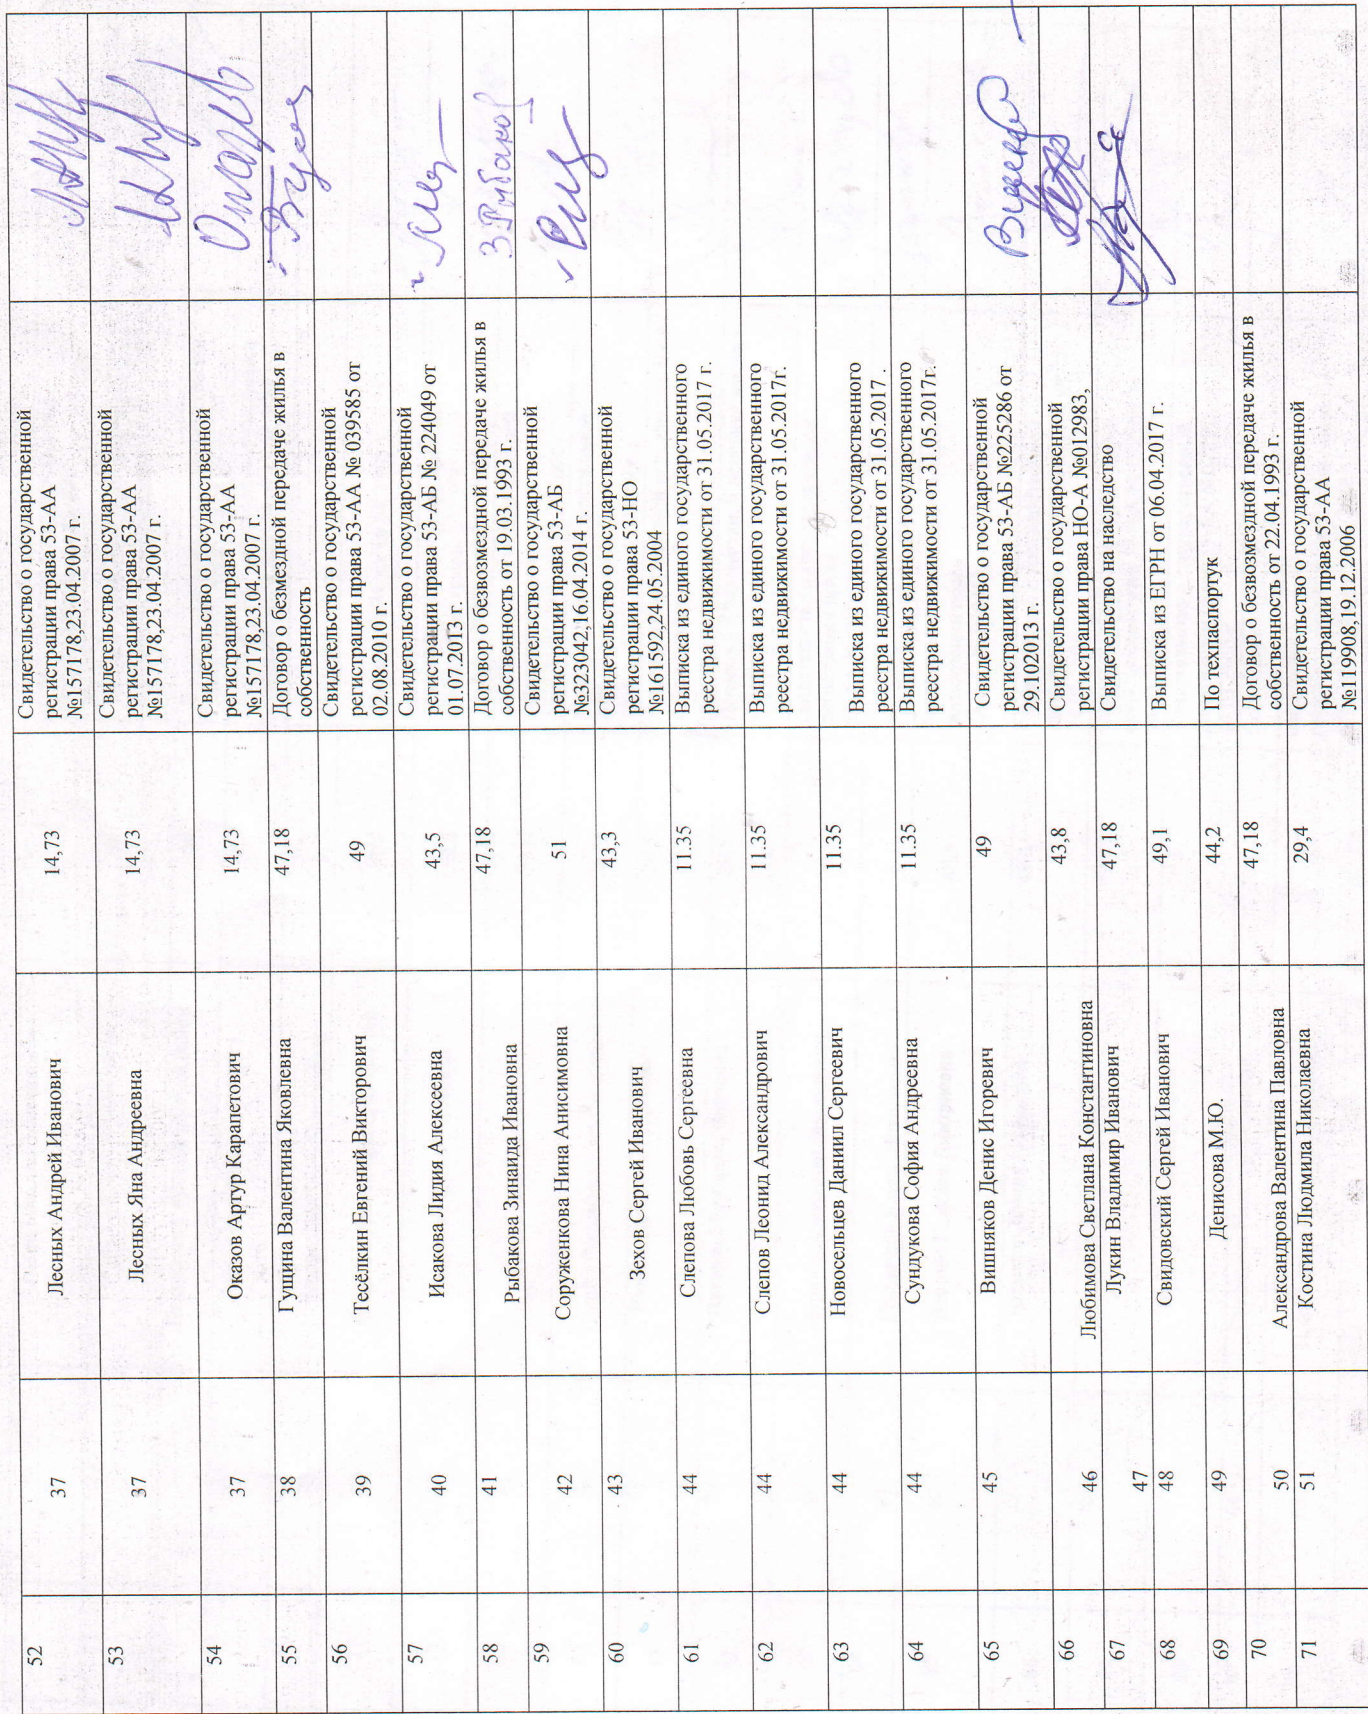 52 37 Лесных Андрей Иванович 14,73 Свидетельство о государственной
регистрации права 53-АА
№157178,23.04.2007 г.
53 37 Лесных Яна Андреевна 14,73 Свидетельство о государственной
регистрации права 53-АА
№157178,23.04.2007 г.
54 37 Оказов Артур Карапетович 14,73 Свидетельство о государственной
регистрации права 53-АА
№157178,23.04.2007 г.
55 38 Гущина Валентина Яковлевна 47,18 Договор о безмездной передаче жилья в
собственность
56 39 Тесёлкин Евгений Викторович 49 Свидетельство о государственной
регистрации права 53-АА № 039585 от
02.08.2010 г.
57 40 Исакова Лидия Алексеевна 43,5 Свидетельство о государственной
регистрации права 53-АБ № 224049 от
01.07.2013 г.
58 41 Рыбакова Зинаида Ивановна 47,18 Договор о безвозмездной передаче жилья в
собственность от 19.03.1993 г.
59 42 Соруженкова Нина Анисимовна 51 Свидетельство о государственной
регистрации права 53-АБ
№323042,16.04.2014 г.
60 43 Зехов Сергей Иванович 43,3 Свидетельство о государственной
регистрации права 53-НО
№161592,24.05.2004
61 44 Слепова Любовь Сергеевна 11.35 Выписка из единого государственного
реестра недвижимости от 31.05.2017 г.
62 44 Слепов Леонид Александрович 11.35 Выписка из единого государственного
реестра недвижимости от 31.05.2017г.
63 44 Новосельцев Данил Сергеевич 11.35 Выписка из единого государственного
реестра недвижимости от 31.05.2017 .
64 44 Сундукова София Андреевна 11.35 Выписка из единого государственного
реестра недвижимости от 31.05.2017г.
65 45 Вишняков Денис Игоревич 49 Свидетельство о государственной
регистрации права 53-АБ №225286 от
29.102013 г.
66 46 Любимова Светлана Константиновна 43,8 Свидетельство о государственной
регистрации права НО-А №012983,
67 47 Лукин Владимир Иванович 47,18 Свидетельство на наследство
68 48 Свидовский Сергей Иванович 49,1 Выписка из ЕГРН от 06.04.2017 г.
69 49 Денисова М.Ю. 44,2 По техпаспортук
70 50 Александрова Валентина Павловна 47,18 Договор о безвозмездной передаче жилья в
собственность от 22.04.1993 г.
71 51 Костина Людмила Николаевна 29,4 Свидетельство о государственной
регистрации права 53-АА
№119908,19.12.2006